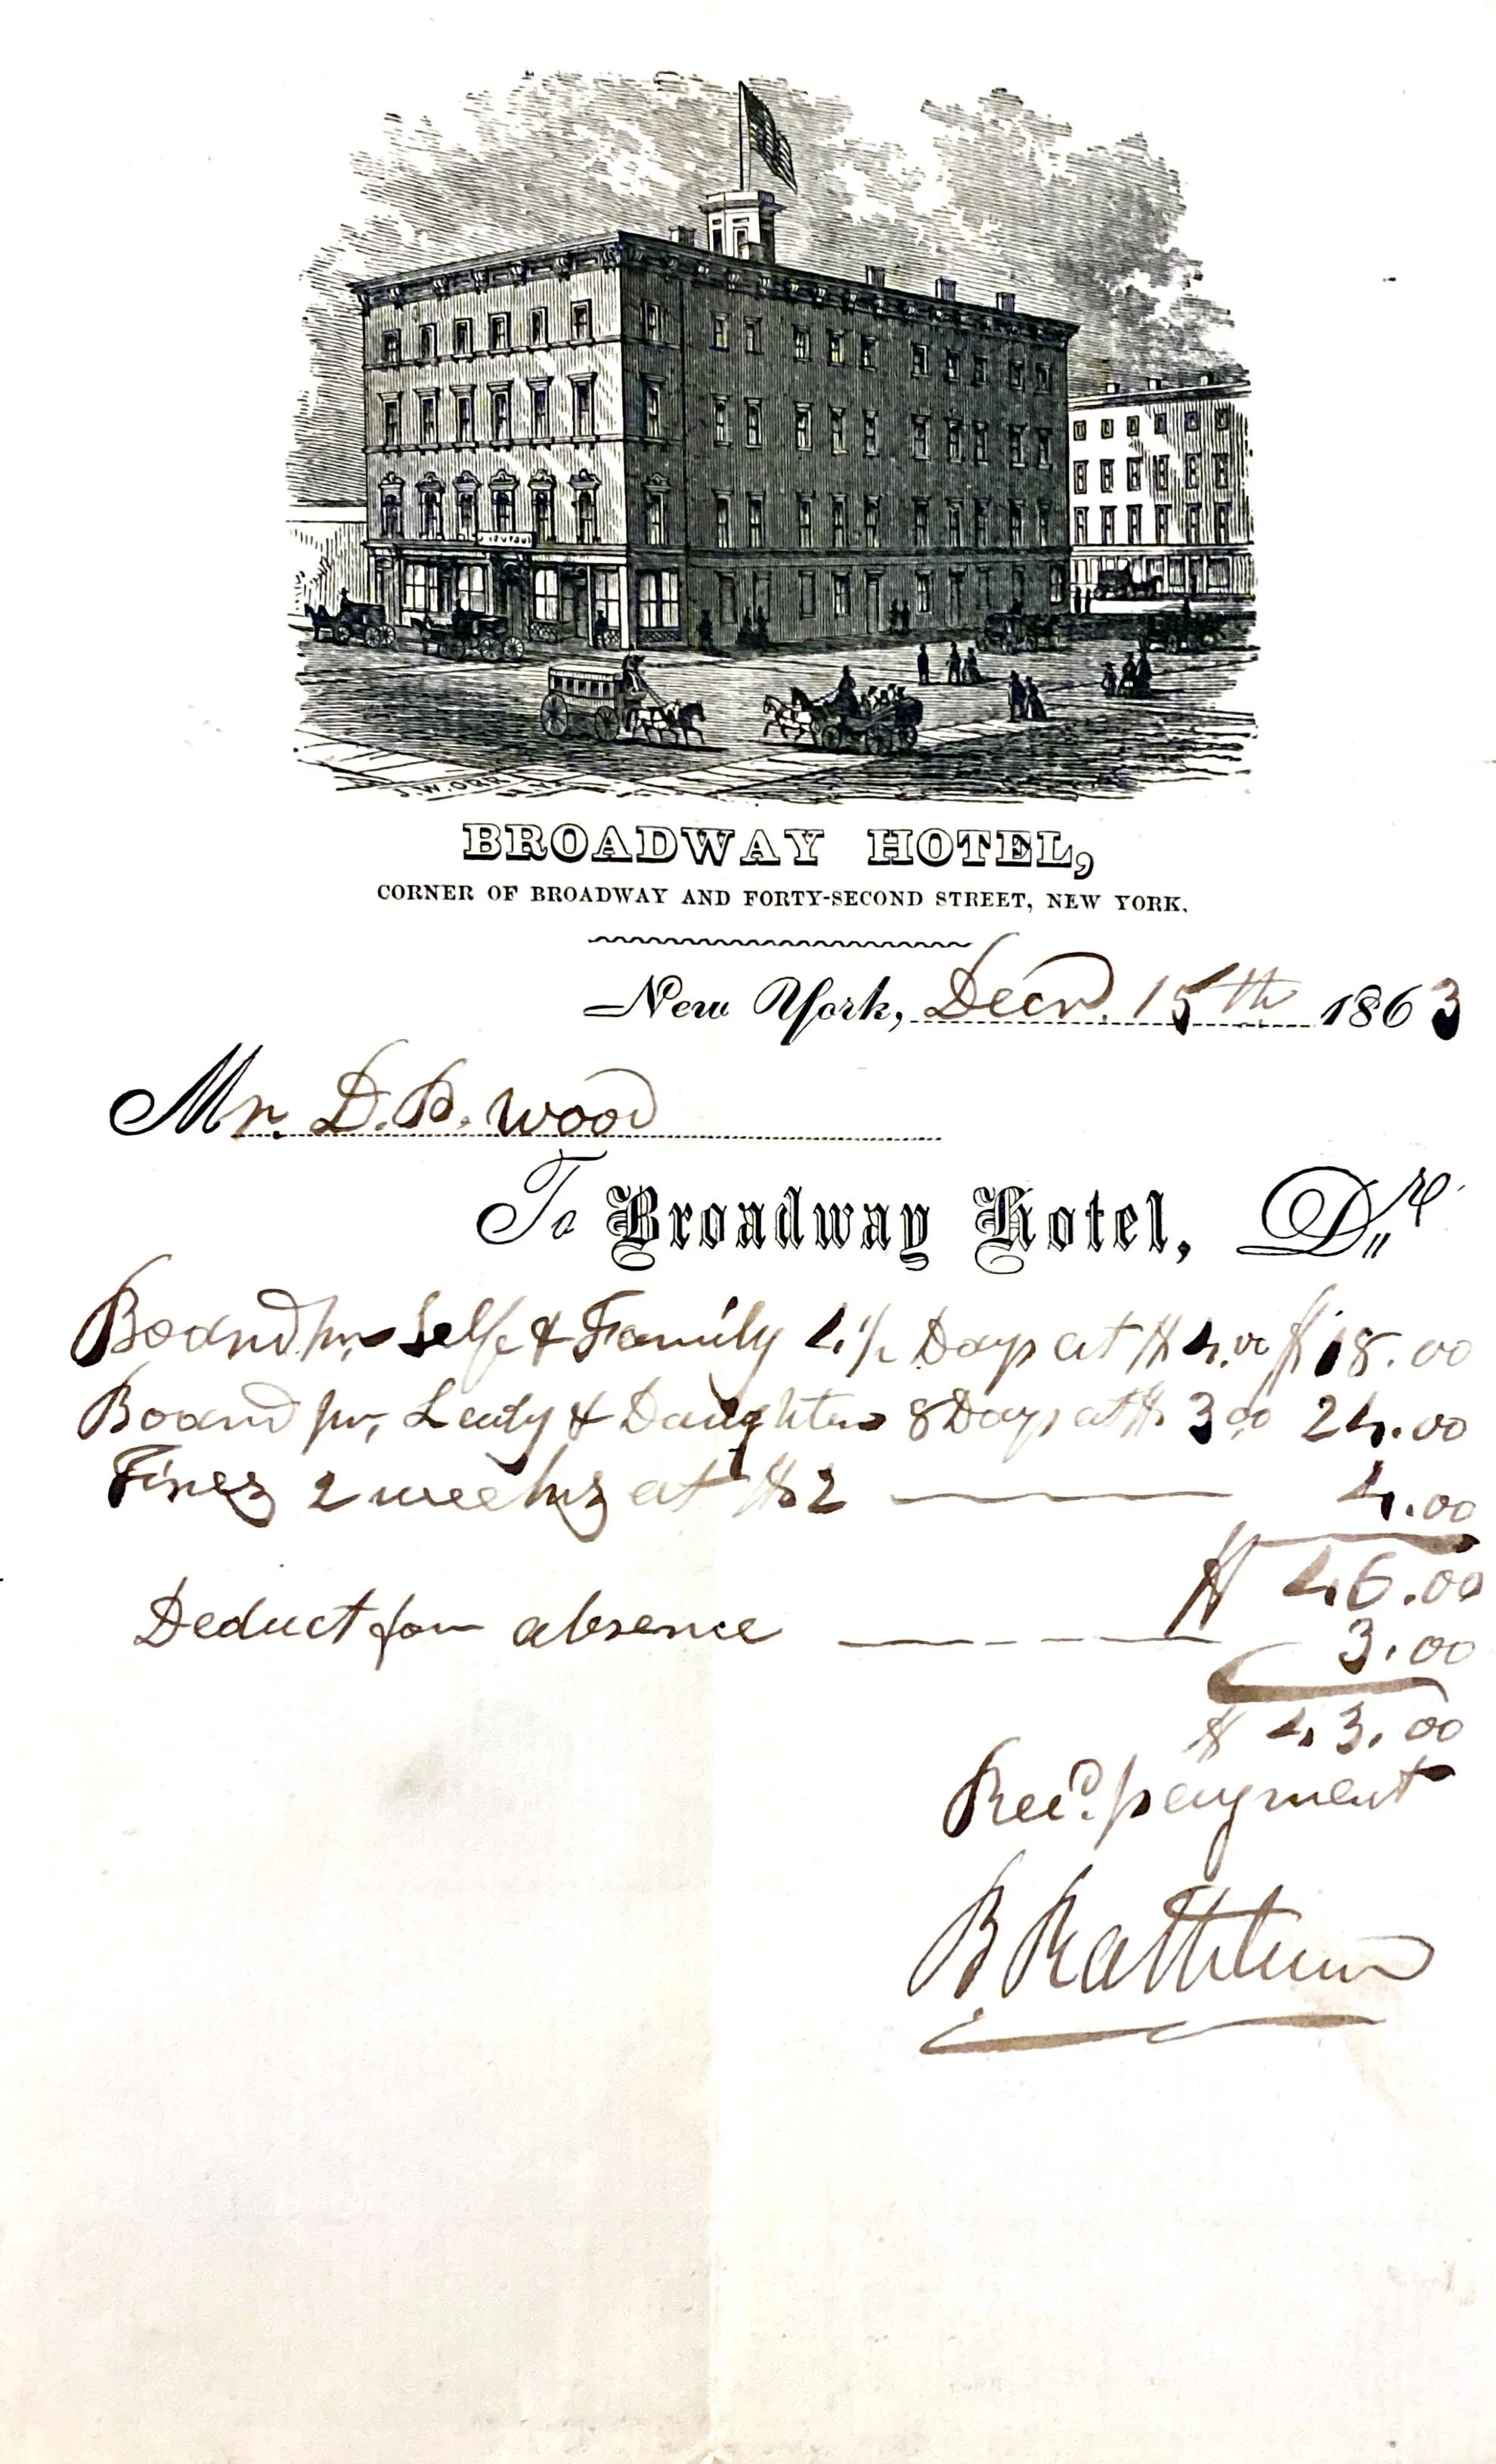 J.W. ORR N.Y.
BROADWAY HOTEL,
CORNER OF BROADWAY AND FORTY-SECOND STREET, NEW YORK.
New York, Decr. 15th 1863
Mr. D. D. Wood
To Broadway Hotel, Dr.
Board for Self & Family 4½ Days at $4.00 $18.00
Board for Lady & Daughter 8 Days at $3.00 24.00
Fires 2 weeks at $2 4.00
$46.00
Deduct for absence 3.00
$43.00
Recd. payment
B Rathbun